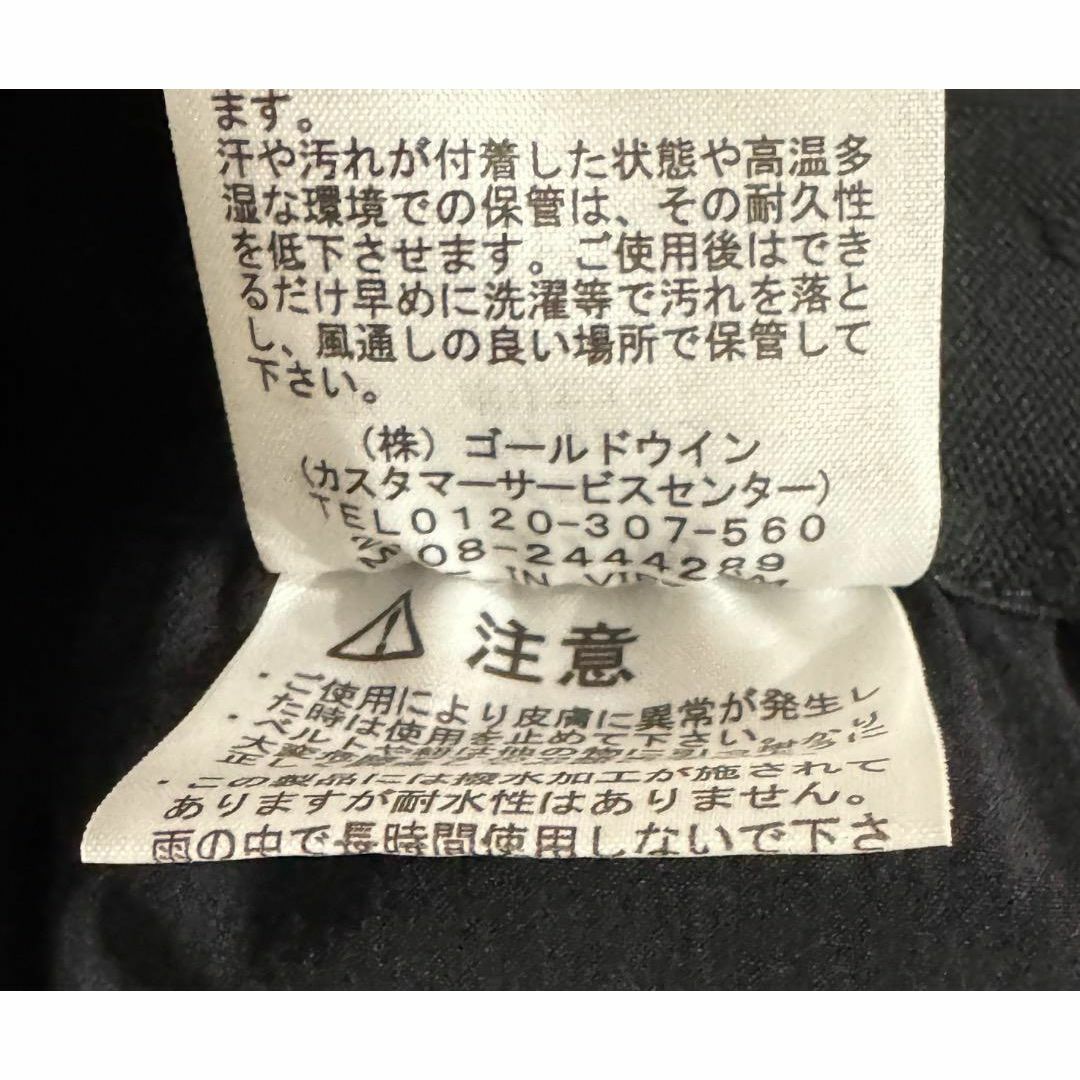 ます。
汗や汚れが付着した状態や高温多
湿な環境での保管は、その耐久性
を低下させます。ご使用後はでき
るだけ早めに洗濯等で汚れを落と
し、風通しの良い場所で保管して
下さい。
(株) ゴールドウイン
(カスタマーサービスセンター)
TEL0120-307-560
08-2444289
IN
注意
・ご使用により皮膚に異常が発生し
た時は使用を止めて下さい。
・ベルトや紐は他の物に引っ掛かり
大変危険
・この製品には撥水加工が施されて
ありますが耐水性はありません。
雨の中で長時間使用しないで下さ